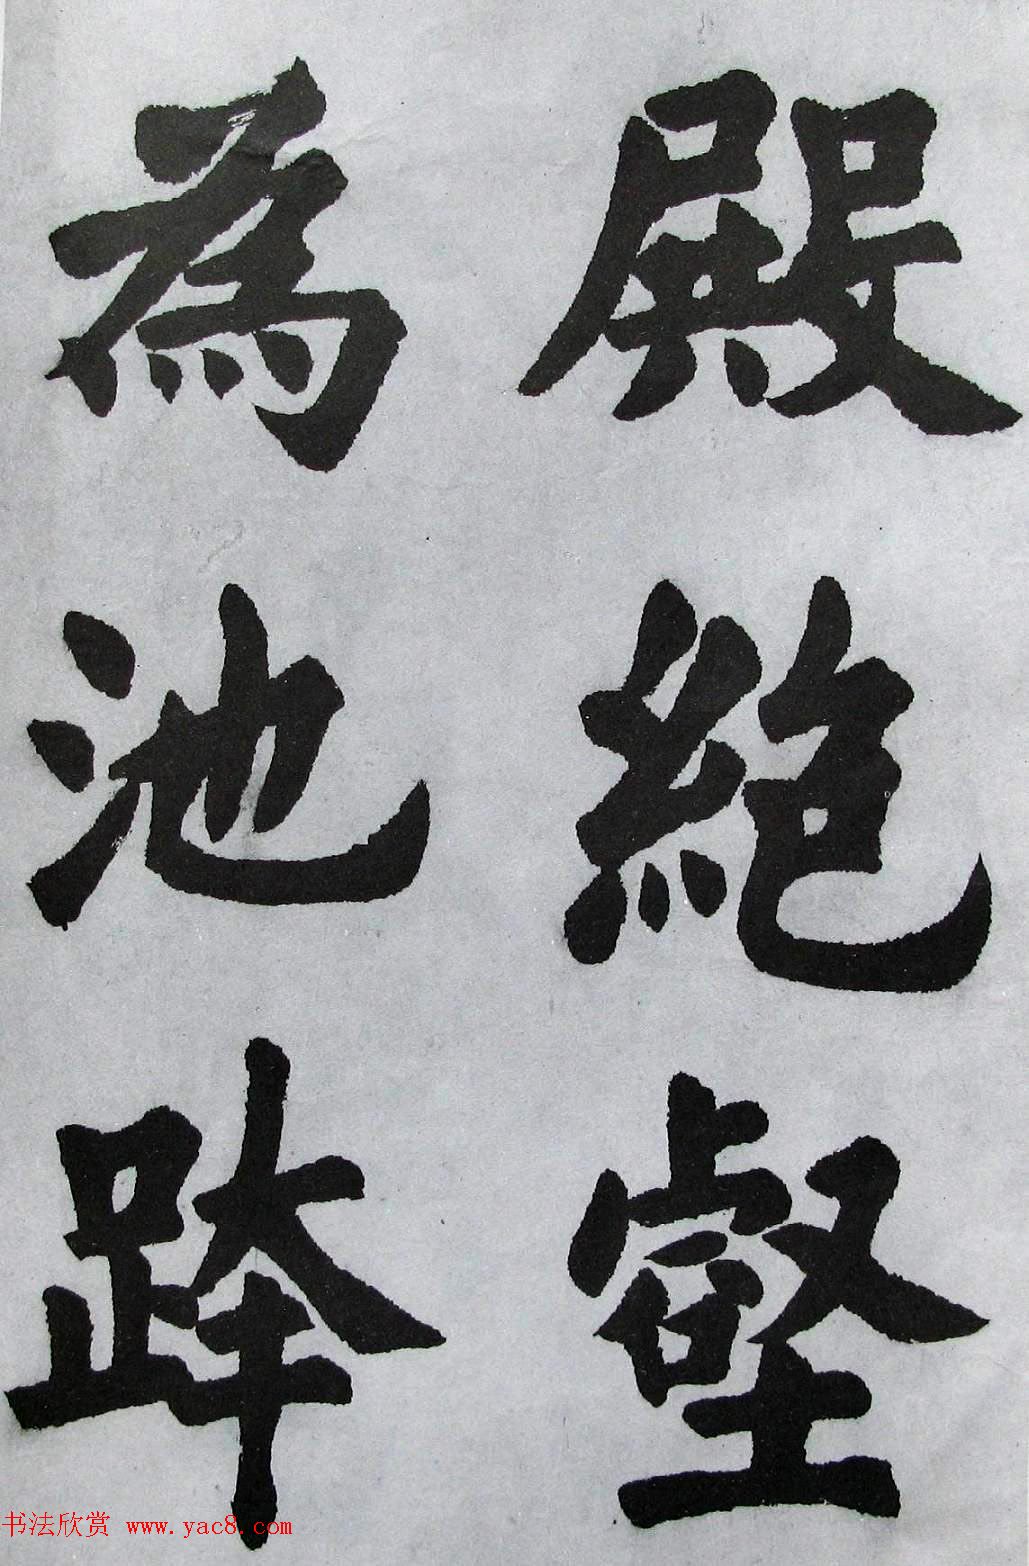 殿絕壑
為池跨
书法欣赏 www.yac8.com